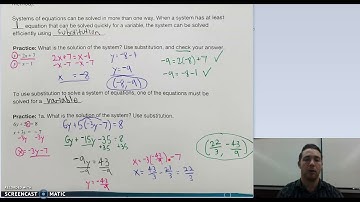 Systems of equations can be solved in more than one way. When a system has at least
1 equation that can be solved quickly for a variable, the system can be solved
efficiently using substitution.
Practice: What is the solution of the system? Use substitution, and check your answer.
2x+7=x-1
-x-7 -x-7
x = -8
y=-8-1
y=-9
(-8,-9)
-9=2(-8)+7 ✓
-9=-8-1 ✓
To use substitution to solve a system of equations, one of the equations must be
solved for a variable.
Practice: 1a. What is the solution of the system? Use substitution.
6y+5(-3y-7)=8
6y-15y-35=8
+35 +35
-9y=43
-9 -9
x=-3y-7
x=-3(-43/9)-7
x=43/3-21/3=22/3
(22/3, -43/9)
SCREENCAST MATIC